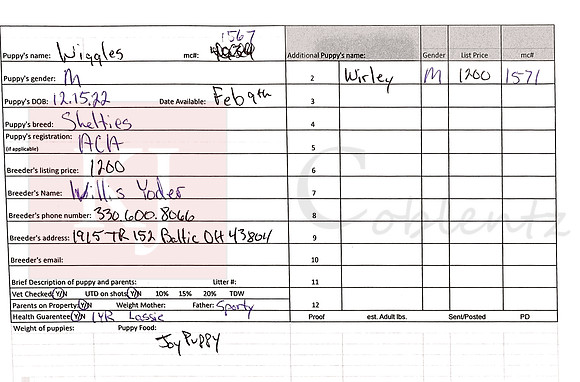 1567
Puppy's name: Wiggles mc#:
Additional Puppy's name: Gender List Price mc#
Puppy's gender: M
2 Wirley M 1200 1571
Puppy's DOB: 12.15.22 Date Available: Feb 9th
3
Puppy's breed: Shelties
4
Puppy's registration: ACA
(if applicable)
5
Breeder's listing price: 1200
6
Breeder's Name: Willis Yoder
7
Breeder's phone number: 330.600.8066
8
Breeder's address: 1915 TR 152 Baltic OH 43804
9
Breeder's email:
10
Brief Description of puppy and parents: Litter #:
11
Vet Checked Y/N UTD on shots Y/N 10% 15% 20% TDW
Parents on Property Y/N Weight Mother: Father: Sporty
12
Health Guarantee Y/N 1 YR Lassie
Proof est. Adult lbs. Sent/Posted PD
Weight of puppies: Puppy Food:
Joy Puppy
Coblentz